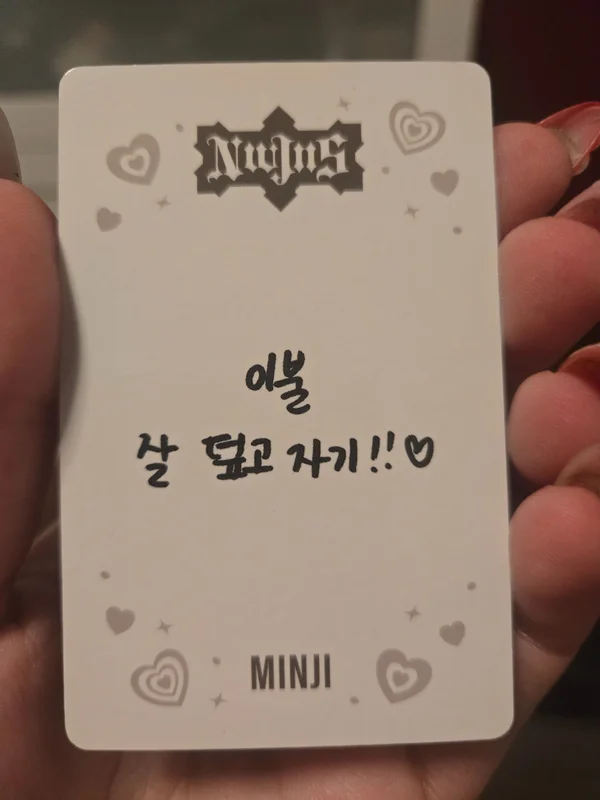 NuJnS
이불
잘 덮고 자기!!♡
MINJI